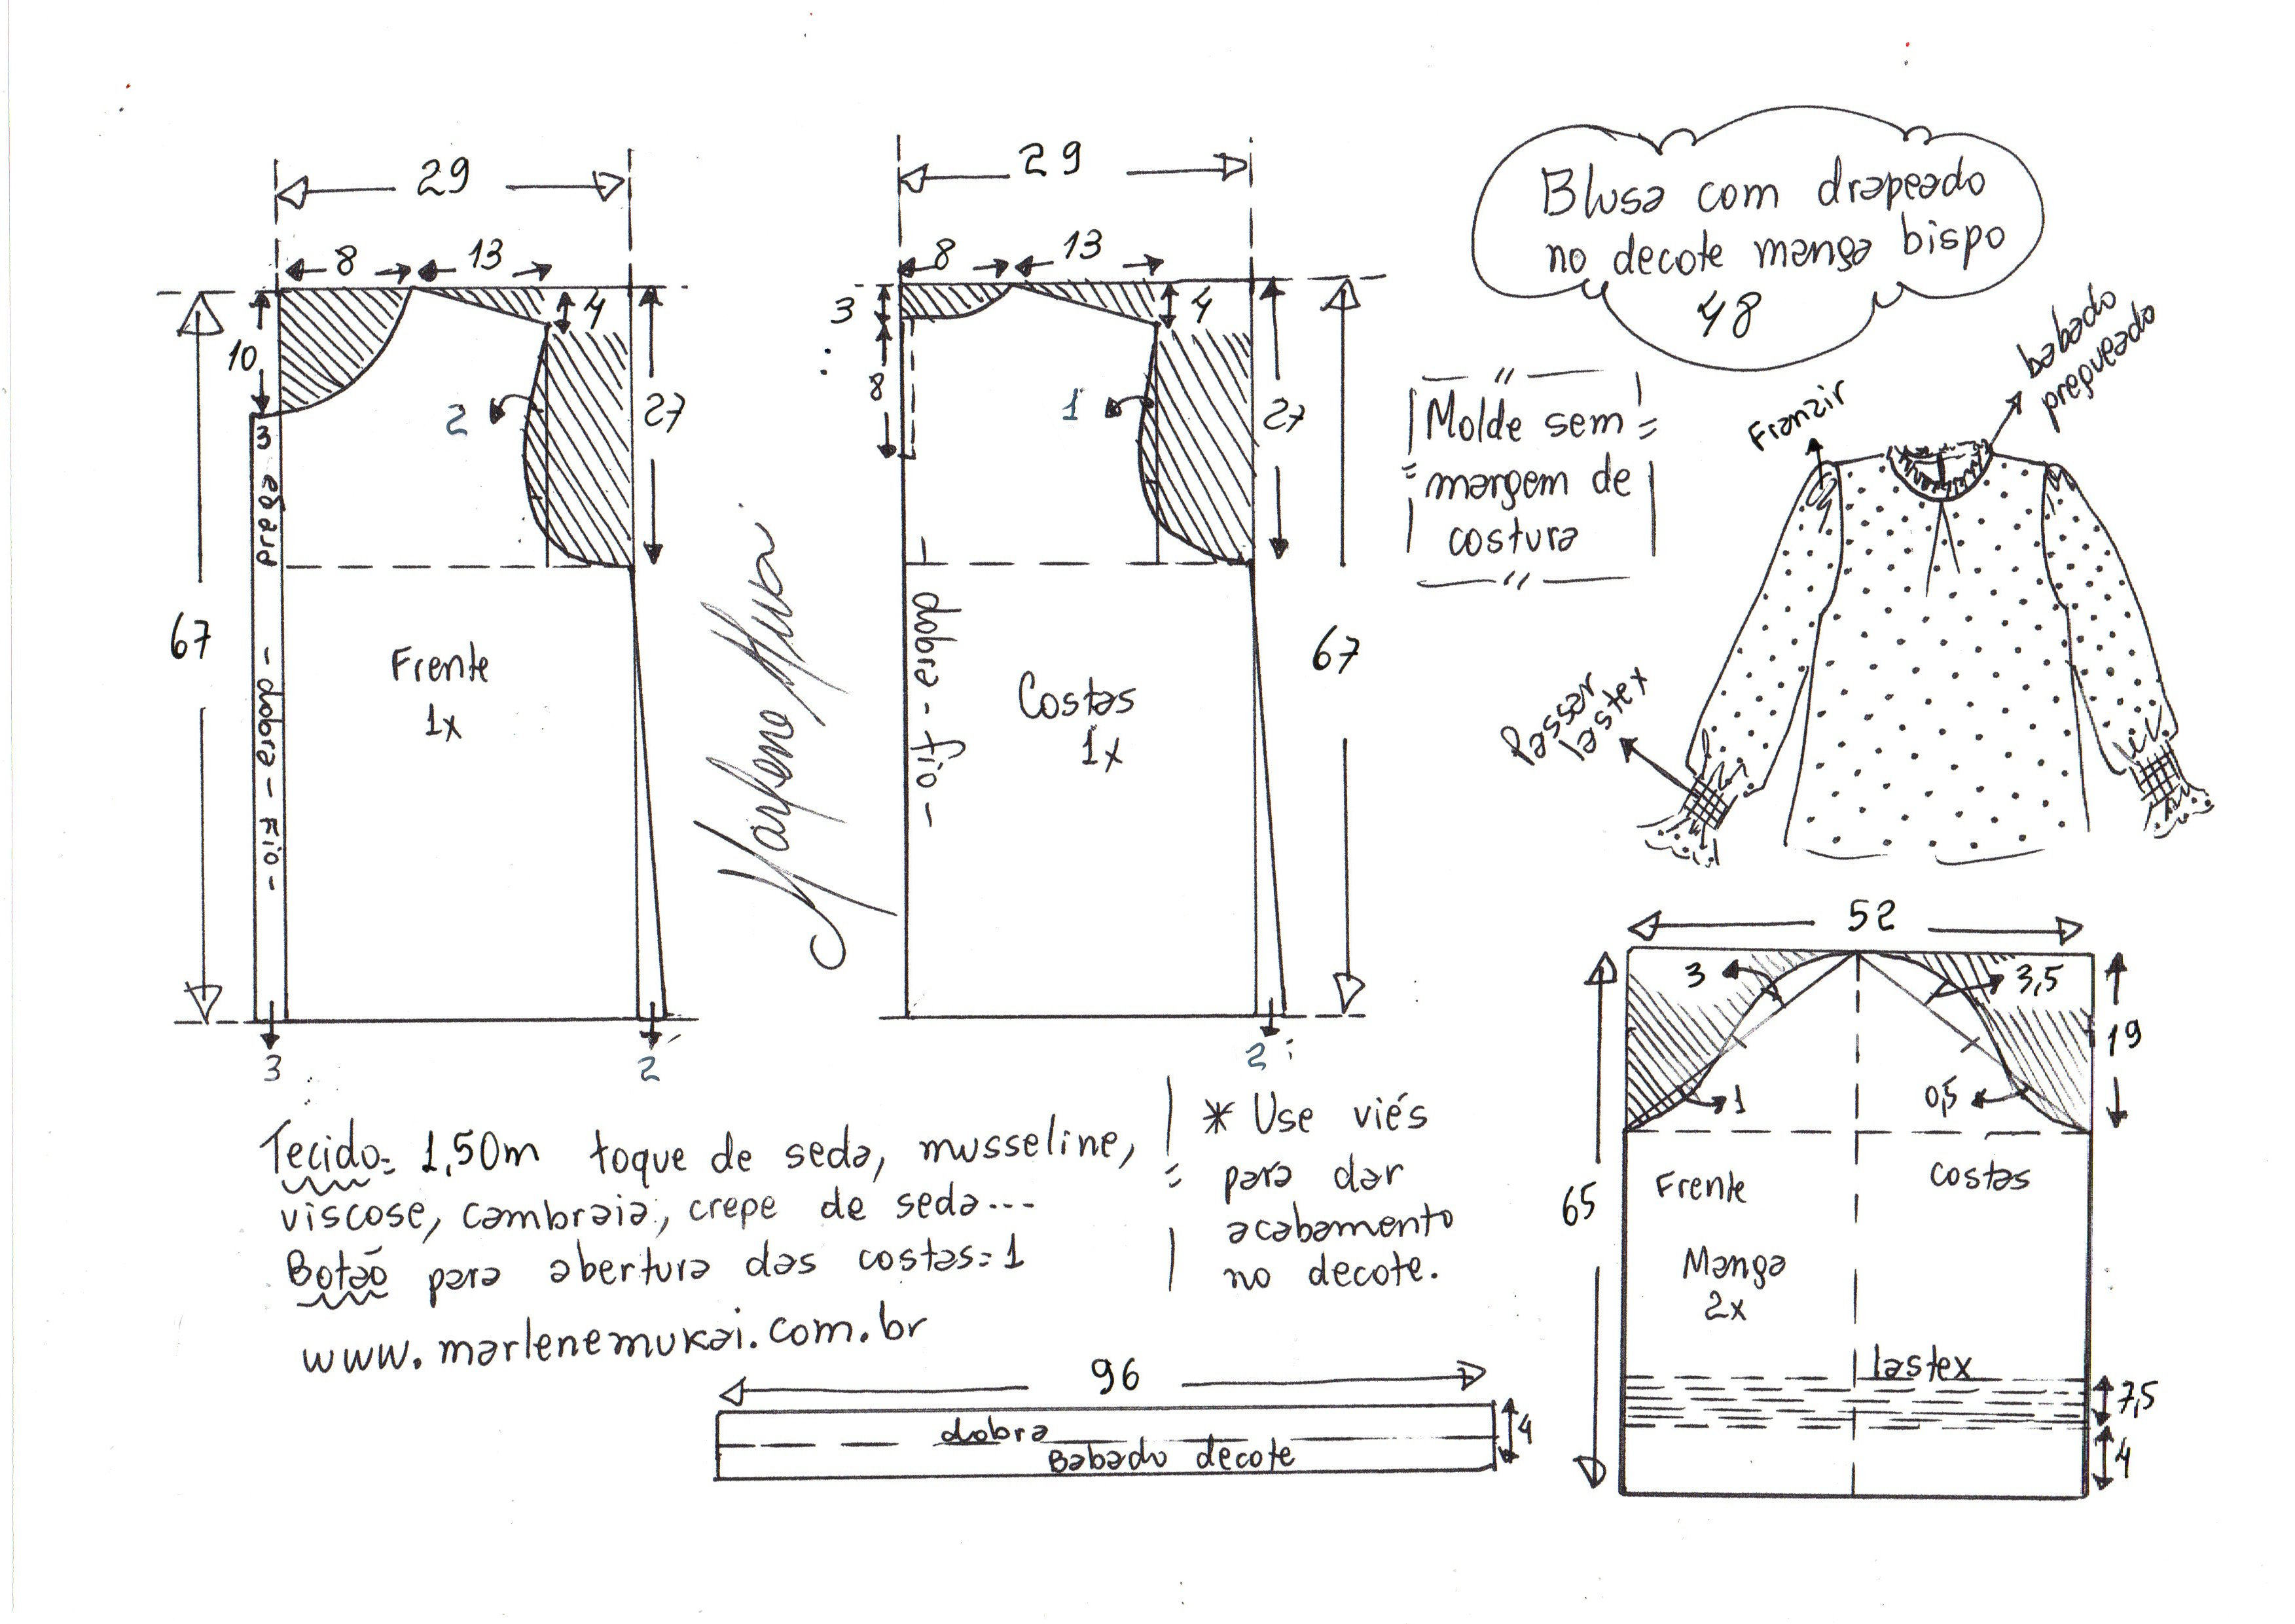 29
8
13
10
4
27
3
2
prega
- dobra - Fio -
67
Frente
1x
3
2
29
8
13
3
4
8
1
27
- dobra - fio -
67
Costas
1x
2
Marlene Mukai
Blusa com drapeado
no decote manga bispo
48
Molde sem
margem de
costura
Franzir
babado
pregueado
Passar
lastex
52
3
3,5
19
1
0,5
65
Frente
costas
Manga
2x
lastex
7,5
4
Tecido= 1,50m toque de seda, musseline,
viscose, cambraia, crepe de seda...
Botão para abertura das costas=1
www.marlenemukai.com.br
* Use viés
para dar
acabamento
no decote.
96
dobra
Babado decote
4